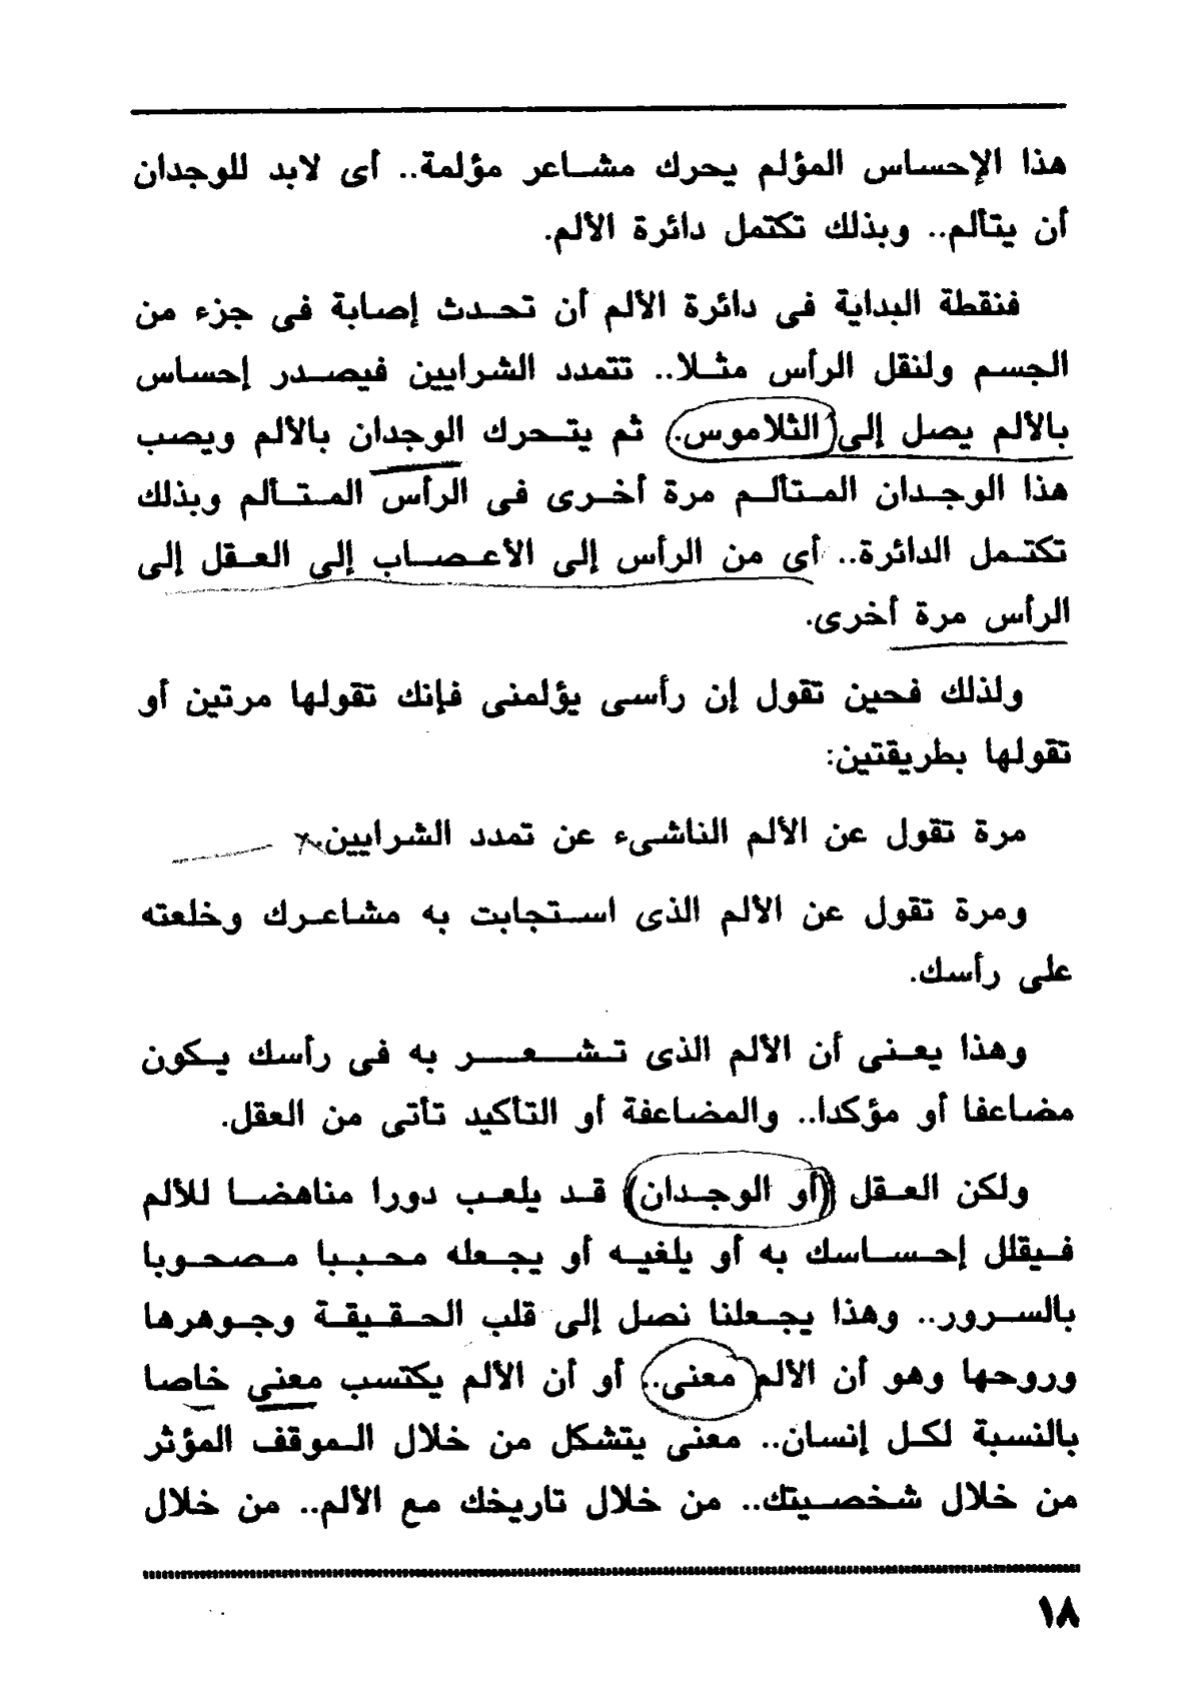 هذا الإحساس المؤلم يحرك مشاعر مؤلمة.. أى لابد للوجدان
أن يتألم.. وبذلك تكتمل دائرة الألم.
فنقطة البداية فى دائرة الألم أن تحدث إصابة فى جزء من
الجسم ولنقل الرأس مثلا.. تتمدد الشرايين فيصدر إحساس
بالألم يصل إلى الثلاموس. ثم يتحرك الوجدان بالألم ويصب
هذا الوجدان المتألم مرة أخرى فى الرأس المتألم وبذلك
تكتمل الدائرة.. أى من الرأس إلى الأعصاب إلى العقل إلى
الرأس مرة أخرى.
ولذلك فحين تقول إن رأسى يؤلمنى فإنك تقولها مرتين أو
تقولها بطريقتين:
مرة تقول عن الألم الناشىء عن تمدد الشرايين.
ومرة تقول عن الألم الذى استجابت به مشاعرك وخلعته
على رأسك.
وهذا يعنى أن الألم الذى تشعر به فى رأسك يكون
مضاعفا أو مؤكدا.. والمضاعفة أو التأكيد تأتى من العقل.
ولكن العقل (أو الوجدان) قد يلعب دورا مناهضا للألم
فيقلل إحساسك به أو يلغيه أو يجعله محببا مصحوبا
بالسرور.. وهذا يجعلنا نصل إلى قلب الحقيقة وجوهرها
وروحها وهو أن الألم معنى.. أو أن الألم يكتسب معنى خاصا
بالنسبة لكل إنسان.. معنى يتشكل من خلال الموقف المؤثر
من خلال شخصيتك.. من خلال تاريخك مع الألم.. من خلال
١٨